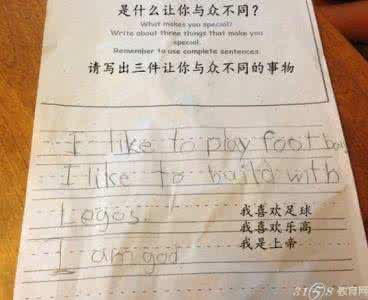 是什么让你与众不同？
What makes you special?
Write about three things that make you
special.
Remember to use complete sentences.
请写出三件让你与众不同的事物
I like to play football
I like to build with
Legos.
我喜欢足球
我喜欢乐高
I am god
我是上帝
3158教育网